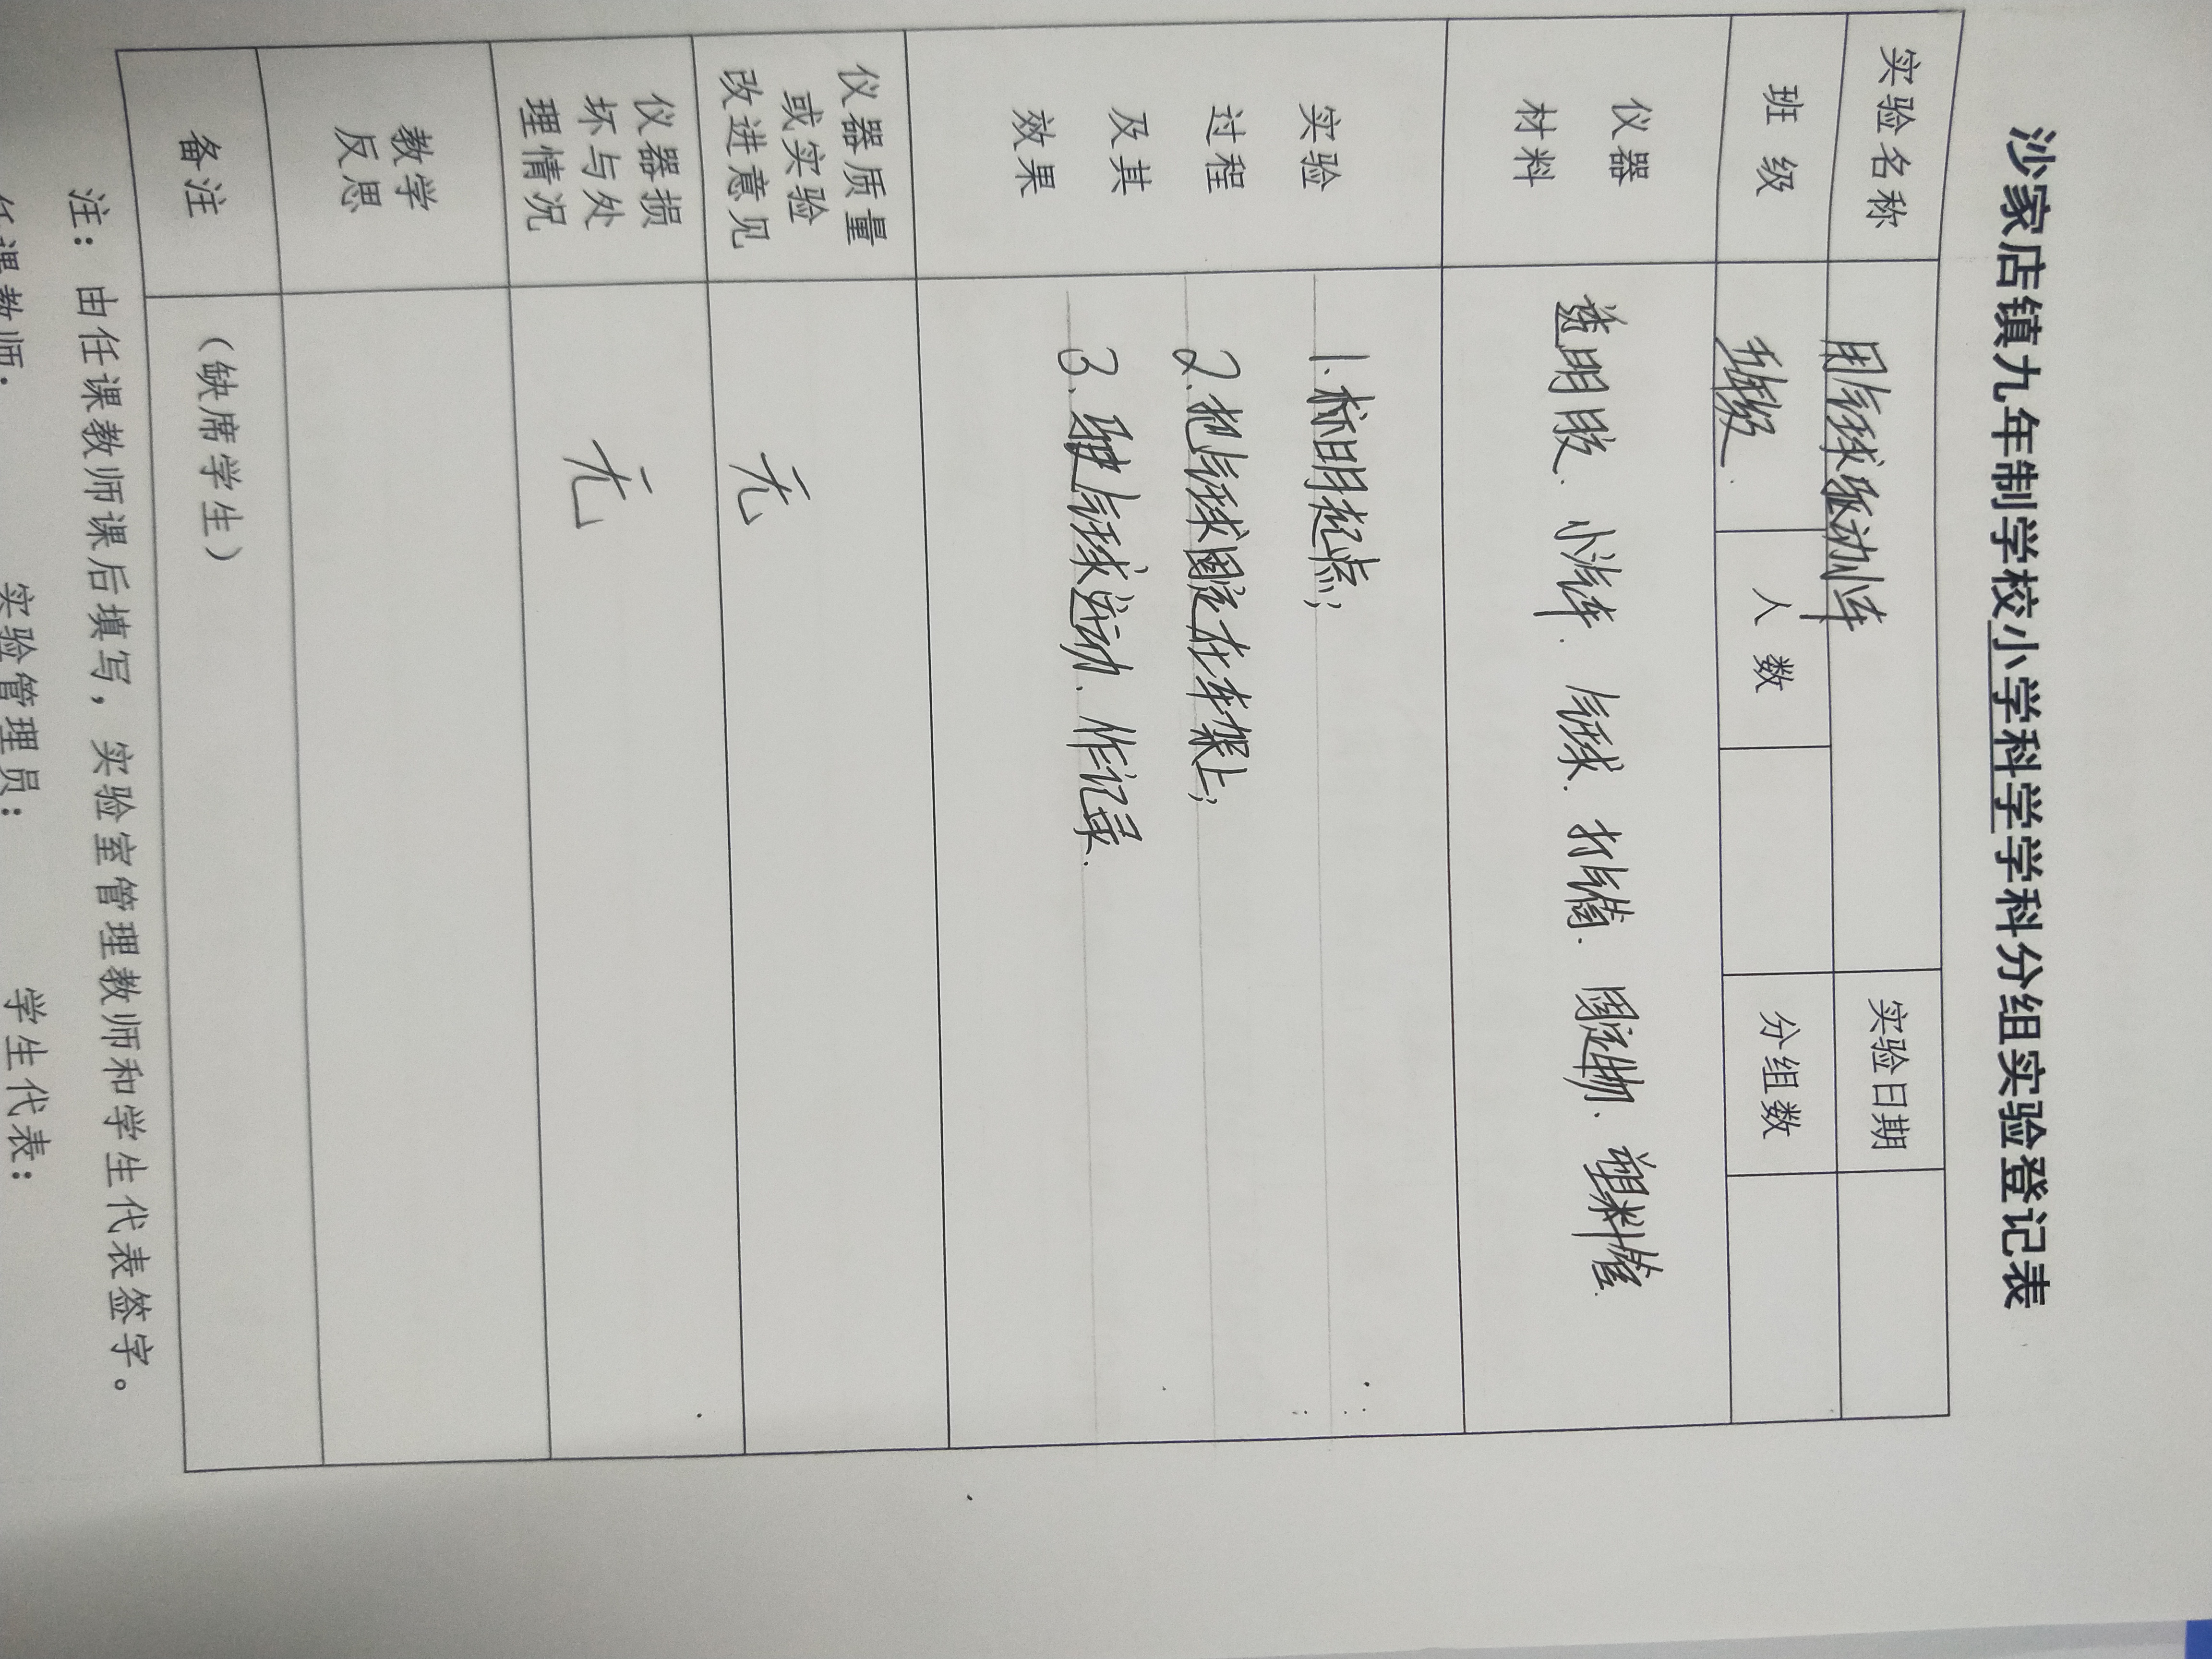 沙家店镇九年制学校小学科学学科分组实验登记表
实验名称 用气球驱动小车 实验日期
班级 五年级. 人数 分组数
仪器材料 透明胶、小汽车、气球、打气筒、固定物、塑料管.
实验过程及其效果 1.标明起点;
2.把气球固定在车架上;
3.驱使气球运动、作记录.
仪器质量或实验改进意见 无
仪器损坏与处理情况 无
教学反思
备注 （缺席学生）
注：由任课教师课后填写，实验室管理教师和学生代表签字。
任课教师： 实验管理员： 学生代表：